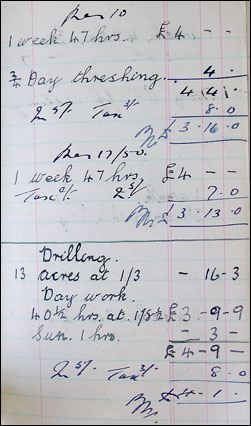 Dec 10
1 week 47 hrs. £4 - -
¾ Day threshing... 4.
4 4 .
2 5/- Tax 3/- 8.0
3.16.0
Dec 17/50.
1 week 47 hrs, £4 - -
Tax 2/- 2 5/- 7.0
3.13.0
Drilling.
13 acres at 1/3 - 16-3
Day work.
40½ hrs. at 1/8½ £3-9-9
Sun. 1 hrs. - 3 -
£4-9-
2 5/- Tax 3/- 8.0
£4-1-